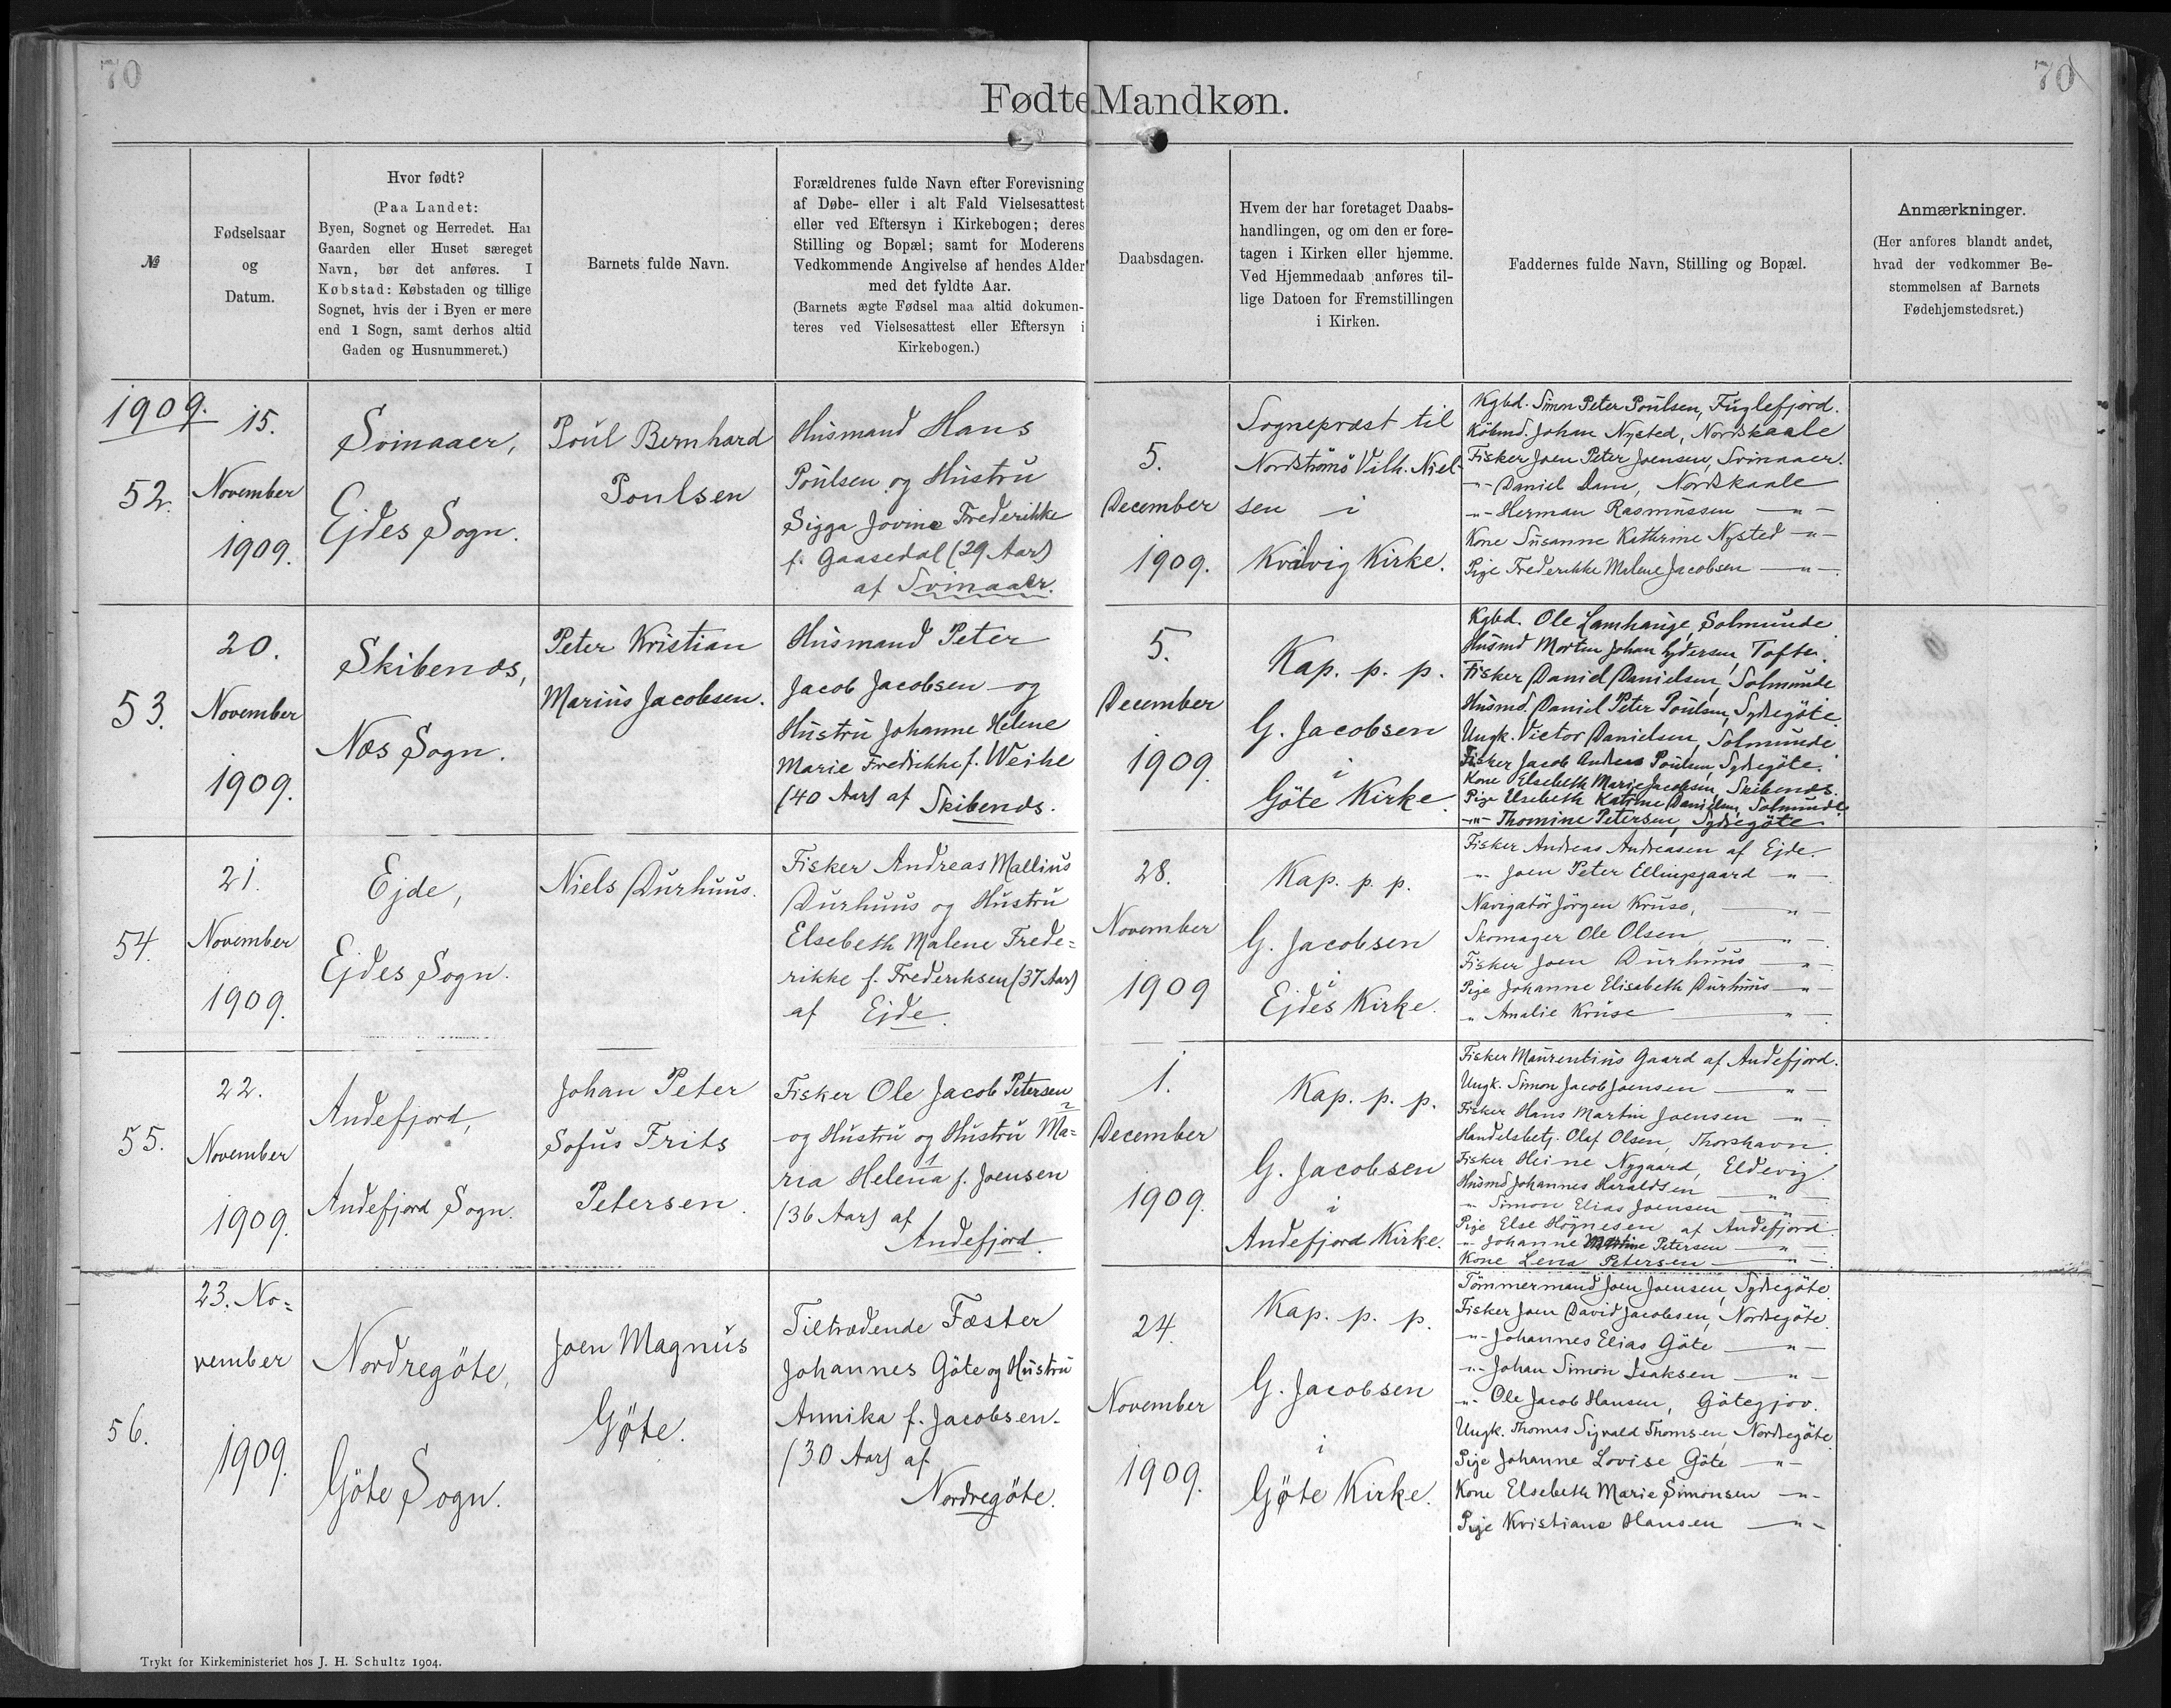 70
70
Fødte Mandkøn.
№
Fødselsaar
og
Datum.
Hvor født?
(Paa Landet:
Byen, Sognet og Herredet. Har
Gaarden eller Huset særeget
Navn, bør det anføres. I
Købstad: Købstaden og tillige
Sognet, hvis der i Byen er mere
end 1 Sogn, samt derhos altid
Gaden og Husnummeret.)
Barnets fulde Navn.
Forældrenes fulde Navn efter Forevisning
af Døbe- eller i alt Fald Vielsesattest
eller ved Eftersyn i Kirkebogen; deres
Stilling og Bopæl; samt for Moderens
Vedkommende Angivelse af hendes Alder
med det fyldte Aar.
(Barnets ægte Fødsel maa altid dokumen-
teres ved Vielsesattest eller Eftersyn i
Kirkebogen.)
Daabsdagen.
Hvem der har foretaget Daabs-
handlingen, og om den er fore-
tagen i Kirken eller hjemme.
Ved Hjemmedaab anføres til-
lige Datoen for Fremstillingen
i Kirken.
Faddernes fulde Navn, Stilling og Bopæl.
Anmærkninger.
(Her anføres blandt andet,
hvad der vedkommer Be-
stemmelsen af Barnets
Fødehjemstedsret.)
1909.
52.
15.
November
1909.
Svinaaer,
Ejdes Sogn.
Poul Bernhard
Poulsen
Husmand Hans
Poulsen og Hustru
Sigga Jovine Frederikke
f. Gaasedal (29 Aar)
af Svinaaer.
5.
December
1909.
Sognepræst til
Nordstrømø Vilh. Niel-
sen i
Kvalvig Kirke.
Kgbd. Simon Peter Poulsen, Fuglefjord.
Købmd. Johan Nysted, Nordskaale
Fisker Joen Peter Joensen, Svinaaer.
-"- Daniel Dam, Nordskaale
-"- Herman Rasmussen -"-
Kone Susanne Kathrine Nysted -"-
Pige Frederikke Malene Jacobsen -"-
53.
20.
November
1909.
Skibenæs,
Næs Sogn.
Peter Kristian
Marius Jacobsen.
Husmand Peter
Jacob Jacobsen og
Hustru Johanne Helene
Marie Fredrikke f. Weihe
(40 Aar) af Skibenæs.
5.
December
1909.
Kap. p. p.
G. Jacobsen
i
Göte Kirke
Kgbd. Ole Lamhauge, Solmunde
Husmd Morten Johan Lydersen, Tofte.
Fisker Daniel Danielsen, Solmunde
Husmd. Daniel Peter Poulsen, Sydregöte.
Ungk. Victor Danielsen, Solmunde
Fisker Jacob Andreas Poulsen, Sydregöte.
Kone Elsebeth Marie Jacobsen, Skibenæs.
Pige Elsebeth Katrine Danielsen, Solmunde
-"- Thomine Petersen, Sydregöte
54.
21.
November
1909.
Ejde,
Ejdes Sogn.
Niels Durhuus.
Fisker Andreas Mallius
Durhuus og Hustru
Elsebeth Malene Frede=
rikke f. Frederiksen (37 Aar)
af Ejde.
28.
November
1909
Kap. p. p.
G. Jacobsen
i
Ejdes Kirke.
Fisker Andreas Andreasen af Ejde.
-"- Joen Peter Ellingsgaard -"-
Navigatör Jörgen Kruse, -"-
Skomager Ole Olsen -"-
Fisker Joen Durhuus -"-
Pige Johanne Elisabeth Durhuus -"-
" Amalie Kruse -"-
55.
22.
November
1909.
Andefjord,
Andefjord Sogn.
Johan Peter
Sofus Frits
Petersen.
Fisker Ole Jacob Petersen
og Hustru og Hustru Ma=
ria Helena f. Joensen
(36 Aar) af
Andefjord.
1.
December
1909.
Kap. p. p.
G. Jacobsen
i
Andefjord Kirke.
Fisker Maurentius Gaard af Andefjord.
Ungk. Simon Jacob Joensen -"-
Fisker Hans Martin Joensen -"-
Handelsbetj. Olaf Olsen, Thorshavn.
Fisker Heine Nygaard, Eldevig.
Husmd Johannes Haraldsen -"-
-"- Simon Elias Joensen -"-
Pige Else Högnesen af Andefjord
-"- Johanne Petersen -"-
Kone Lena Petersen -"-
56.
23. No=
vember
1909.
Nordregöte,
Göte Sogn.
Joen Magnus
Gøte.
Tiltrædende Fæster
Johannes Göte og Hustru
Annika f. Jacobsen.
(30 Aar) af
Nordregöte.
24.
November
1909.
Kap. p. p.
G. Jacobsen
i
Gøte Kirke.
Tömmermand Joen Joensen, Sydregöte.
Fisker Joen David Jacobsen, Nordregöte.
-"- Johannes Elias Göte -"-
-"- Johan Simon Isaksen -"-
-"- Ole Jacob Hansen, Götegjov.
Ungk. Thomas Sigvald Thomsen, Nordregöte.
Pige Johanne Lovise Göte -"-
Kone Elsebeth Marie Simonsen -"-
Pige Kristiane Hansen -"-
Trykt for Kirkeministeriet hos J. H. Schultz 1904.